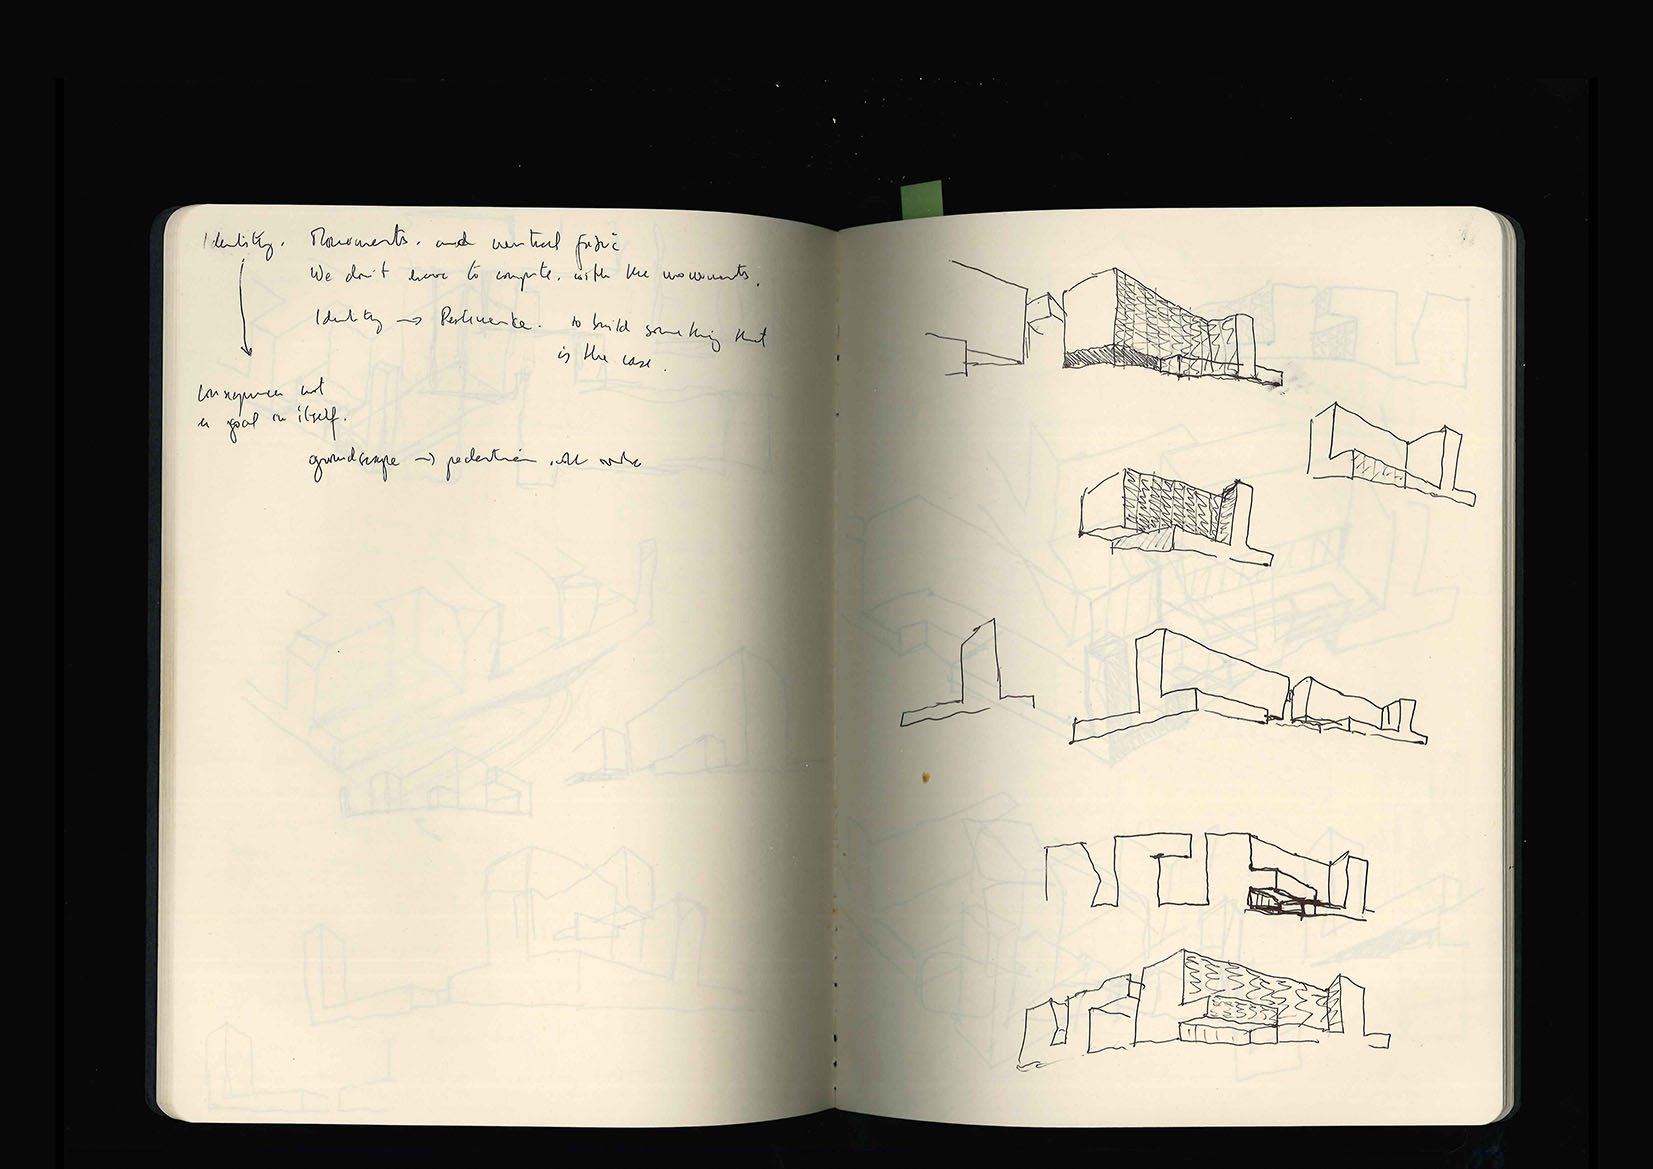 Identity. Monuments. and neutral fabric
We don't have to compete. with the monuments.
Identity → Pertinence. to build something that
is the case.
consequence not
a goal in itself.
groundscape → pedestrian